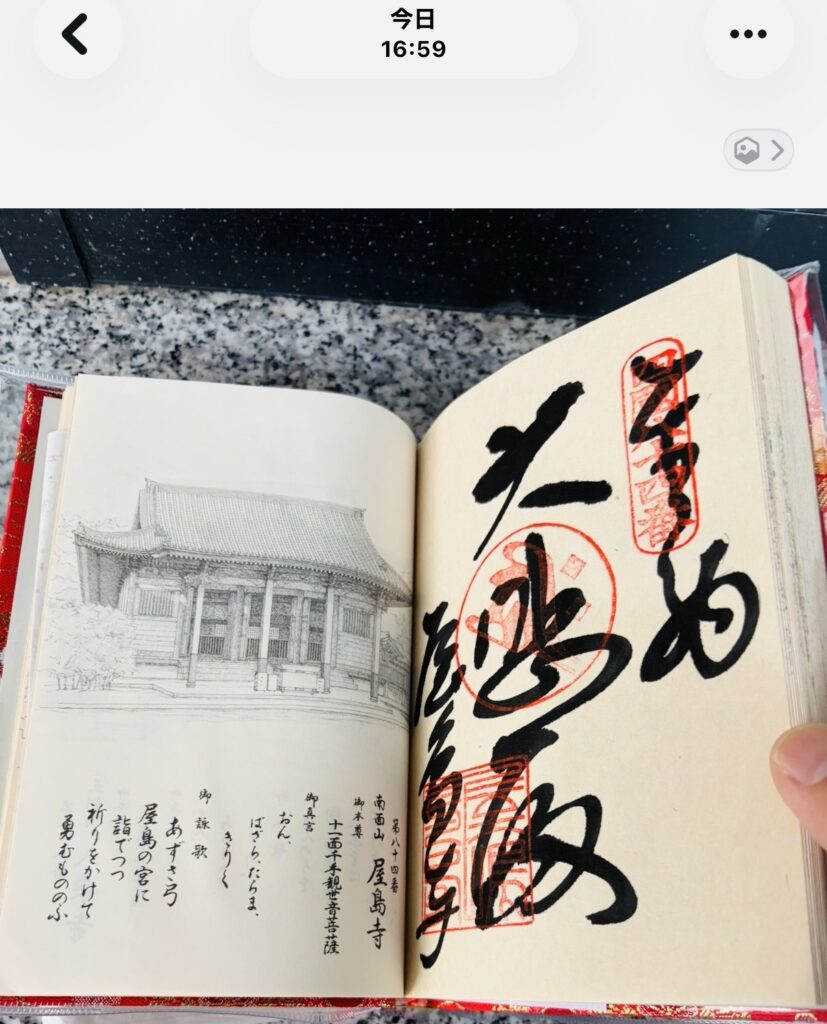 今日
16:59
奉納
大悲殿
屋島寺
第八十四番
南面山 屋島寺
御本尊
十一面千手観世音菩薩
御真言
おん、
ばざら、たらま、
きりく
御詠歌
あずさ弓
屋島の宮に
詣でつつ
祈りをかけて
勇むもののふ